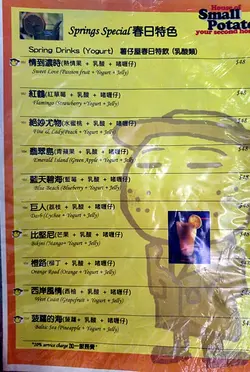 House of
Small
Potato
your second home
Springs Special 春日特色
Spring Drinks (Yogurt) 薯仔屋春日特飲 (乳酸類)
情到濃時(熱情果 + 乳酸 + 啫喱仔) $48
Sweet Love (Passion fruit + Yogurt + Jelly)
紅鶴(紅草莓 + 乳酸 + 啫喱仔) $48
Flamingo (Strawberry + Yogurt + Jelly)
絕沙尤物(水蜜桃 + 乳酸 + 啫喱仔) $48
(Peach + Yogurt + Jelly)
翡翠島(青蘋果 + 乳酸 + 啫喱仔) $48
Emerald Island (Green Apple + Yogurt + Jelly)
藍天碧海(藍莓 + 乳酸 + 啫喱仔) $48
Blue Beach (Blueberry + Yogurt + Jelly)
巨人(荔枝 + 乳酸 + 啫喱仔)
(Lychee + Yogurt + Jelly)
比堅尼(芒果 + 乳酸 + 啫喱仔)
(Mango + Yogurt + Jelly)
橙路(橙汁 + 乳酸 + 啫喱仔)
Orange Road (Orange + Yogurt + Jelly)
西岸風情(西柚 + 乳酸 + 啫喱仔)
West Coast (Grapefruit + Yogurt + Jelly)
菠羅的海(菠蘿 + 乳酸 + 啫喱仔)
Baltic Sea (Pineapple + Yogurt + Jelly)
*10% service charge 加一服務費*